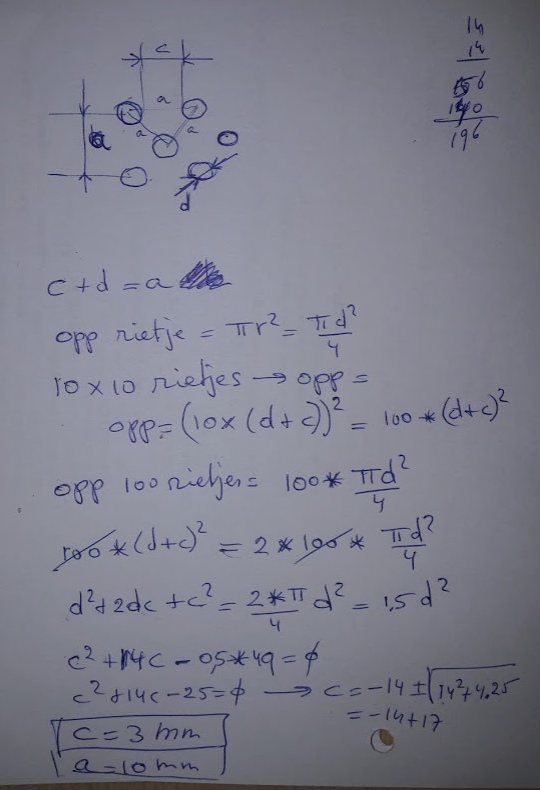 14
14
56
140
196
c
a
a
a
a
d
c + d = a
opp rietje = πr² = πd²/4
10 x 10 rietjes → opp =
opp = (10x (d+c))² = 100 * (d+c)²
opp 100 rietjes = 100 * πd²/4
100 * (d+c)² = 2 * 100 * πd²/4
d² + 2dc + c² = 2*π/4 d² = 1,5 d²
c² + 14c - 0,5*49 = ϕ
c² + 14c - 25 = ϕ → c = -14 ± √14² + 4.25
= -14 + 17
c = 3 mm
a = 10 mm